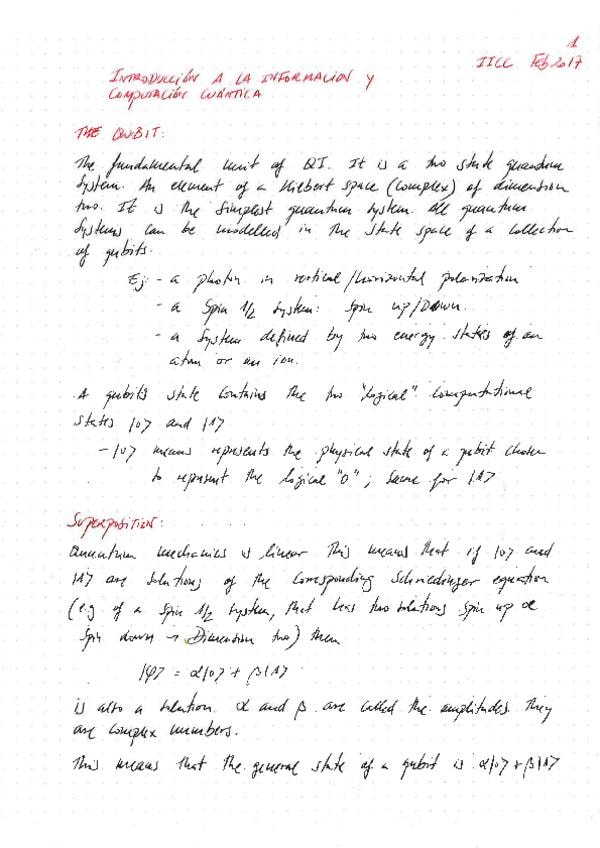 1
IICC Feb 2017
INTRODUCCIÓN A LA INFORMACION Y
COMPUTACIÓN CUÁNTICA
THE QUBIT:
The fundamental unit of QI. It is a two state quantum
system. An element of a Hilbert space (complex) of dimension
two. It is the simplest quantum system. All quantum
systems can be modelled in the state space of a collection
of qubits.
Ej: - a photon in vertical/horizontal polarization
- a Spin 1/2 system: Spin up/Down.
- a System defined by two energy states of an
atom or an ion.
A qubits state contains the two "logical" computational
states |0> and |1>
- |0> means represents the physical state of a qubit chosen
to represent the logical "0"; same for |1>
SUPERPOSITION:
Quantum mechanics is linear This means that if |0> and
|1> are solutions of the corresponding Schroedinger equation
(e.g of a Spin 1/2 system, that has two solutions spin up or
Spin down → Dimension two) then
|φ> = α|0> + β|1>
is also a solution. α and β are called the amplitudes. They
are complex numbers.
This means that the general state of a qubit is α|0> + β|1>